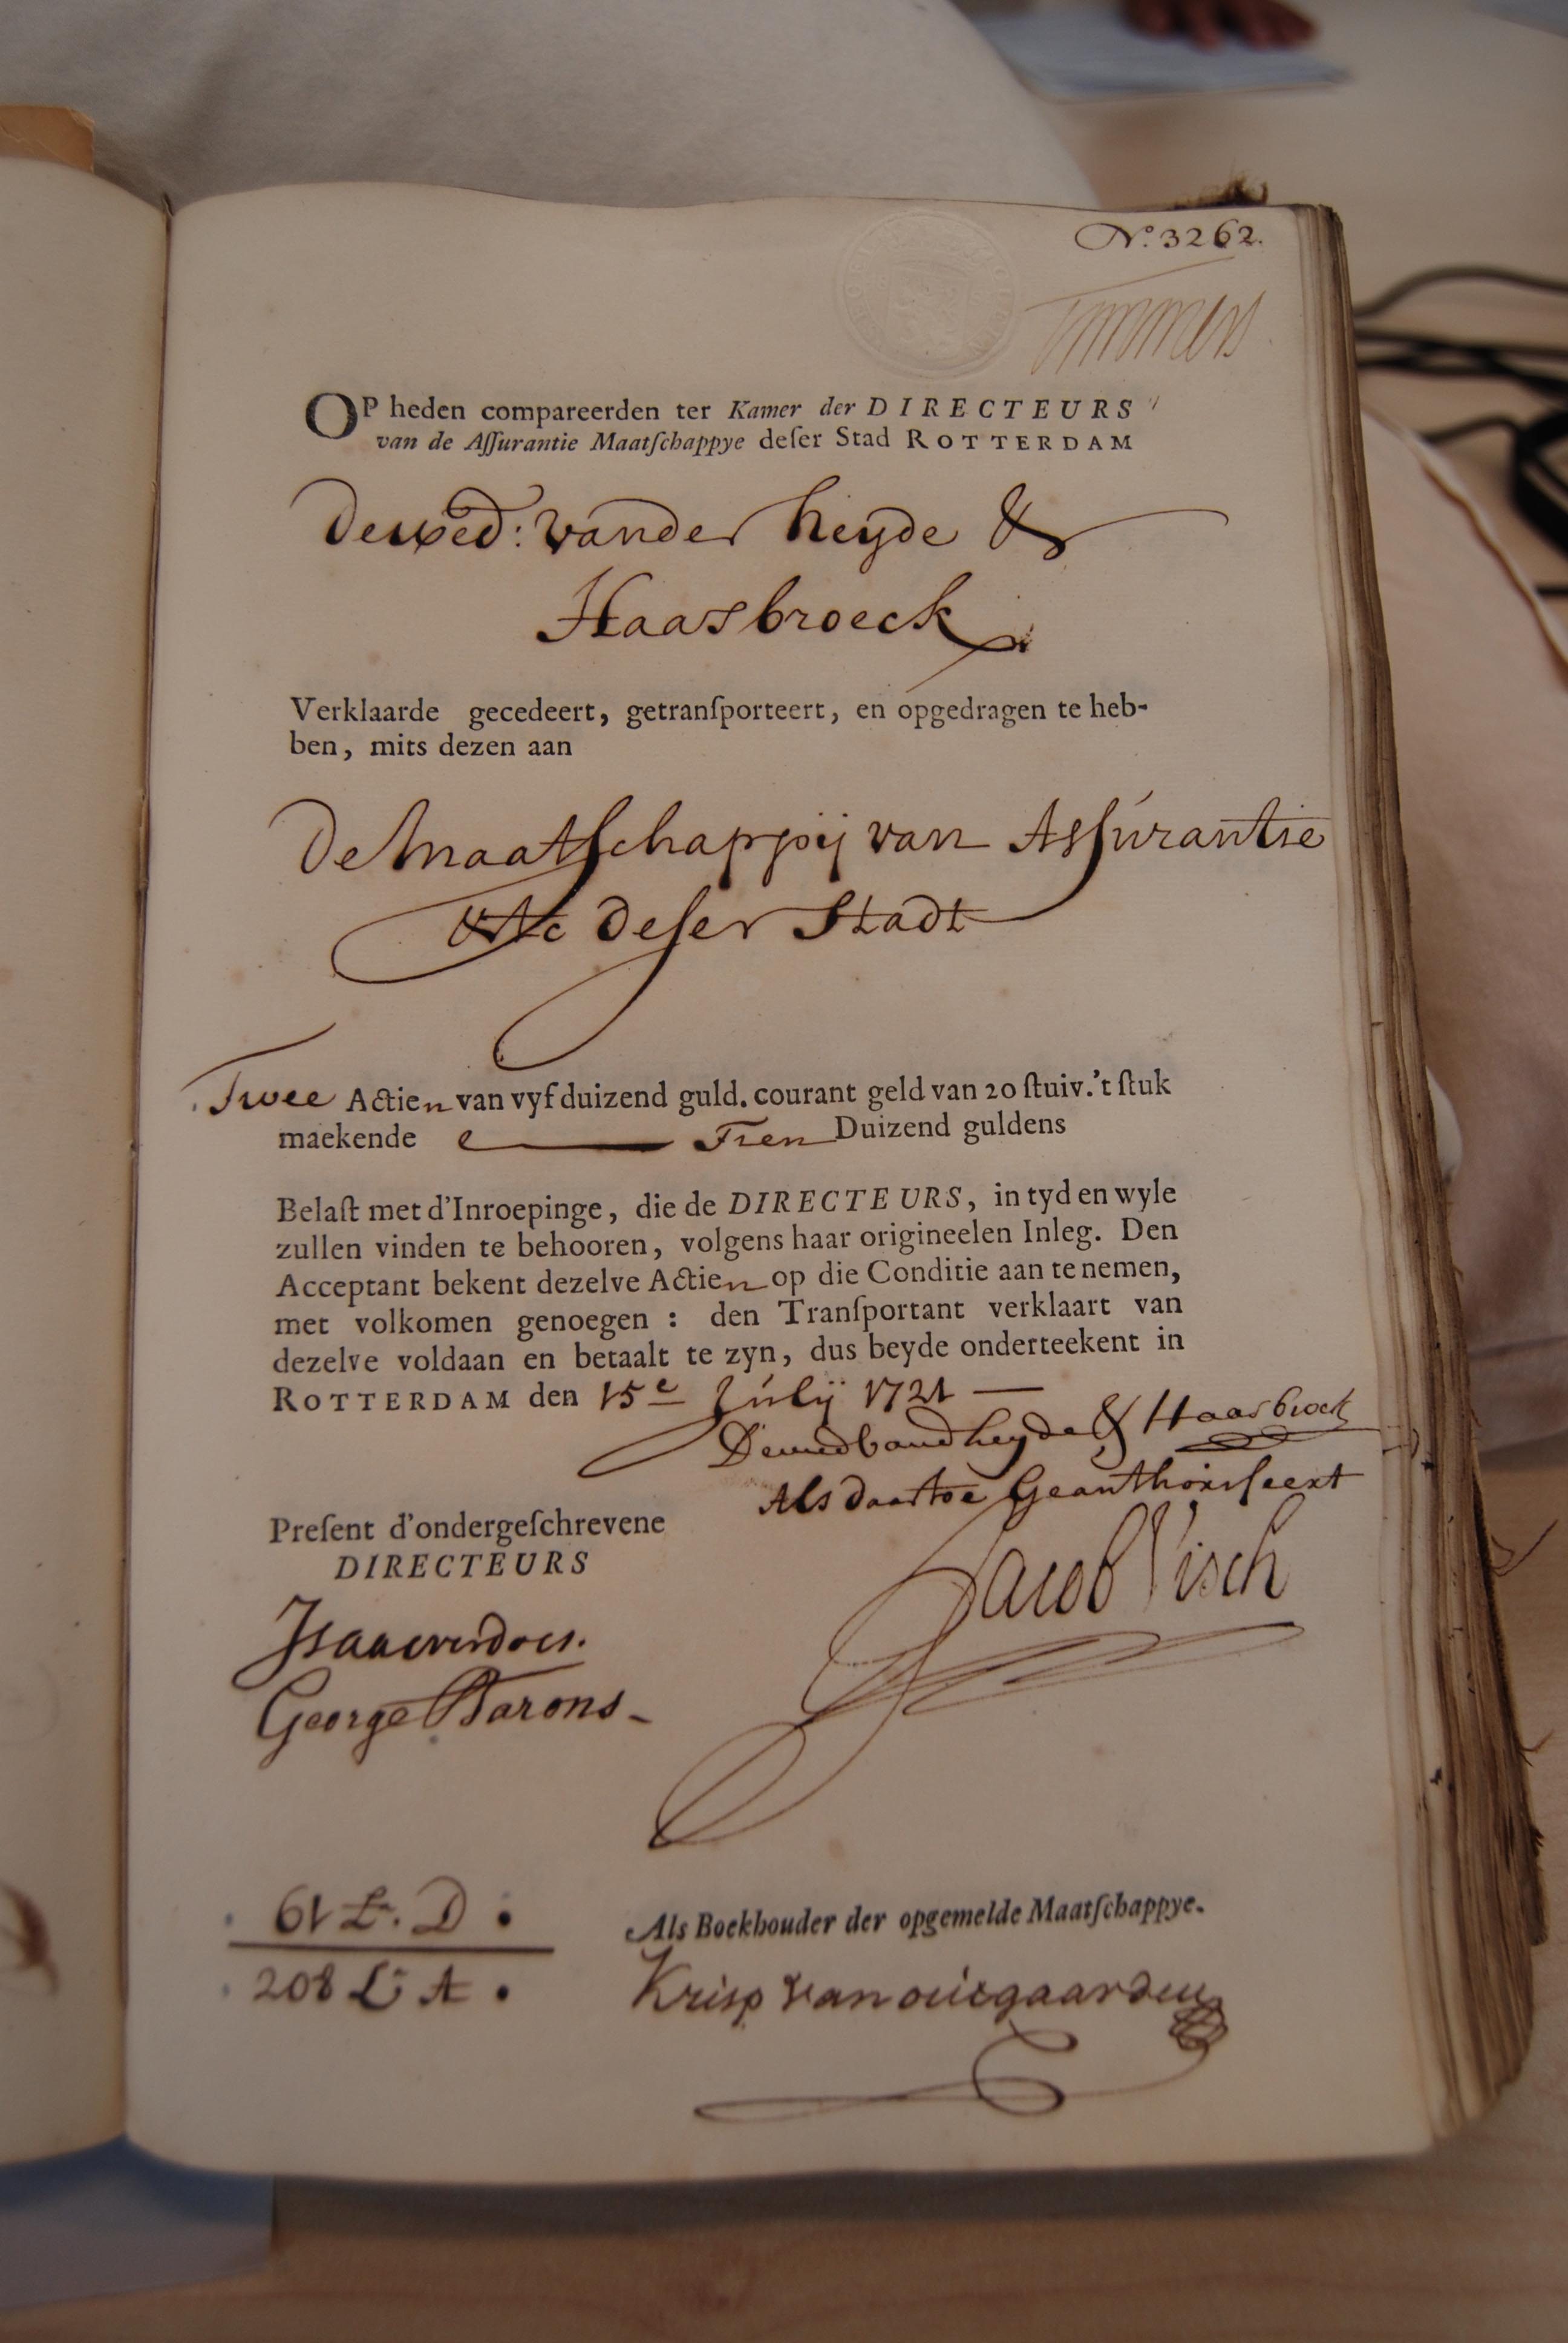 No. 3262.
Timmers
OP heden compareerden ter Kamer der DIRECTEURS
van de Aſſurantie Maatſchappye deſer Stad ROTTERDAM
De wed: vander heyde &
Haasbroeck
Verklaarde gecedeert, getranſporteert, en opgedragen te heb-
ben, mits dezen aan
De Maatſchappij van Aſſurantie
&c deſer Stadt
Twee Actien van vyf duizend guld. courant geld van 20 ſtuiv. 't ſtuk
maekende Tien Duizend guldens
Belaſt met d'Inroepinge, die de DIRECTEURS, in tyd en wyle
zullen vinden te behooren, volgens haar origineelen Inleg. Den
Acceptant bekent dezelve Actien op die Conditie aan te nemen,
met volkomen genoegen : den Tranſportant verklaart van
dezelve voldaan en betaalt te zyn, dus beyde onderteekent in
ROTTERDAM den 15e Julij 1721
De wed vand heyde & Haasbroek
Als daartoe Geauthoriseert
Jacob Visch
Preſent d'ondergeſchrevene
DIRECTEURS
Isaac verdoes.
George Barons
61 Lr. D
208 Lr A
Als Boekhouder der opgemelde Maatſchappye.
Krisp van outgaarden